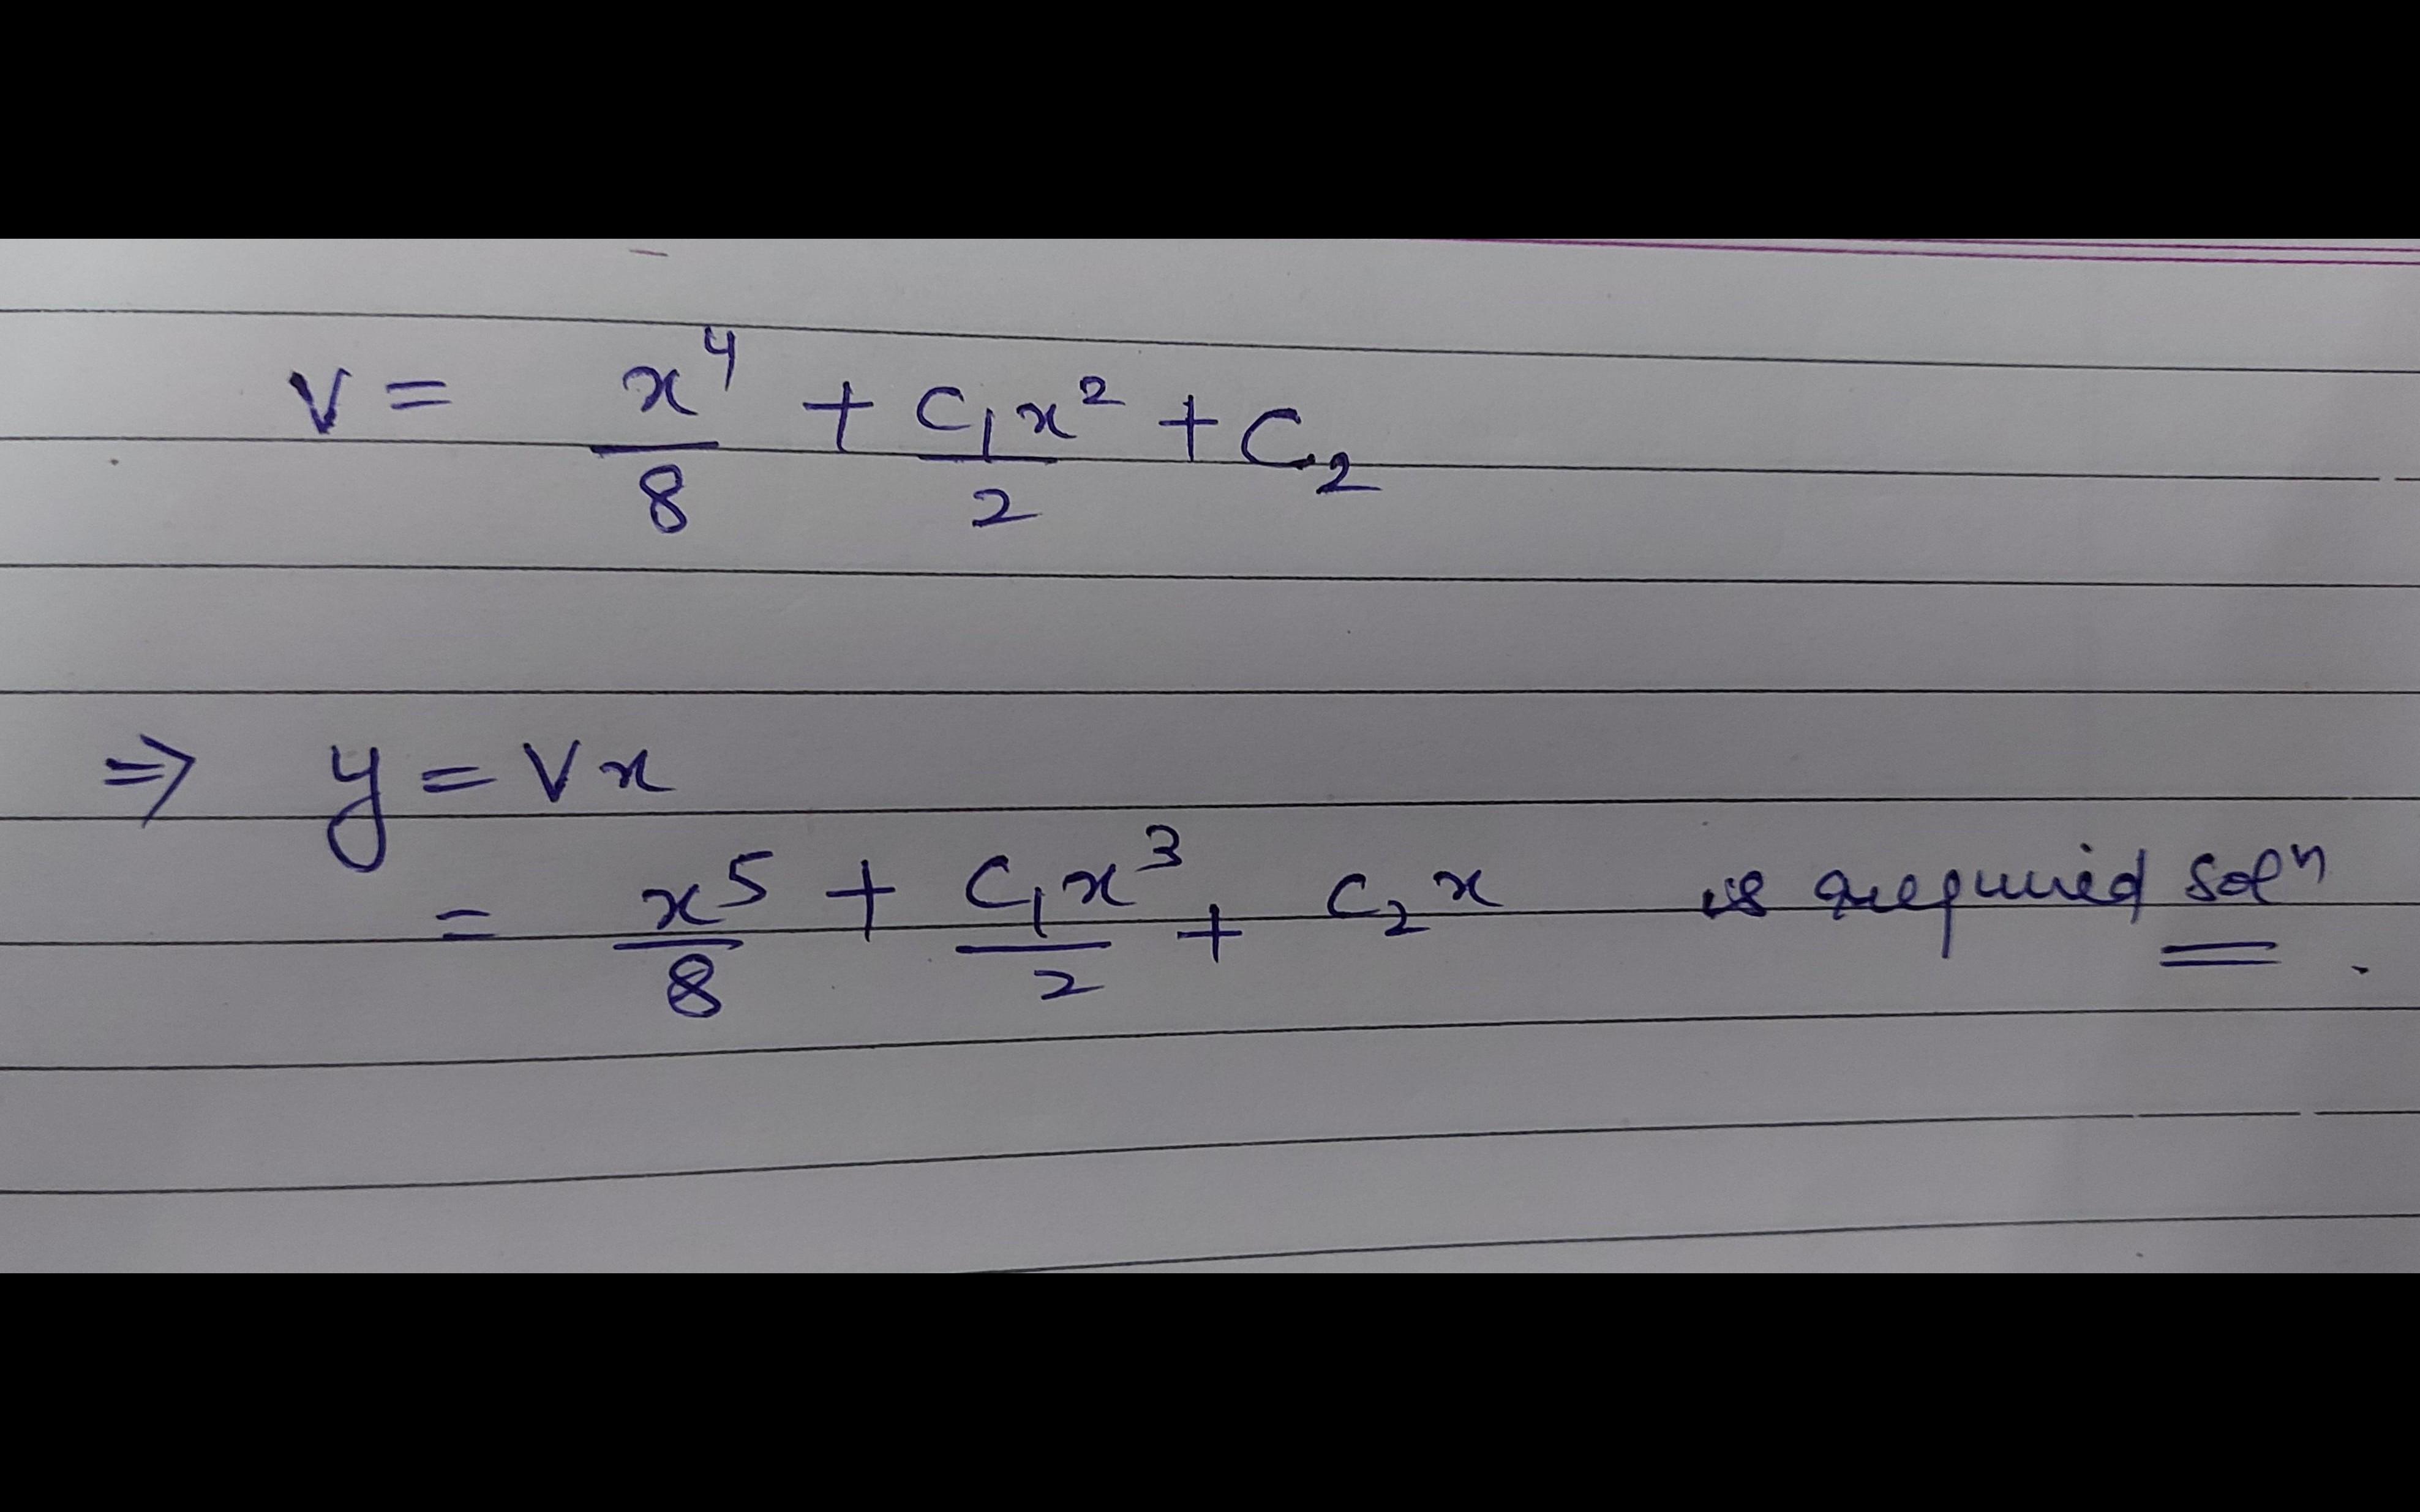 V = x⁴/8 + C₁x²/2 + C₂
⇒ y = Vx
= x⁵/8 + C₁x³/2 + C₂x is required solⁿ.